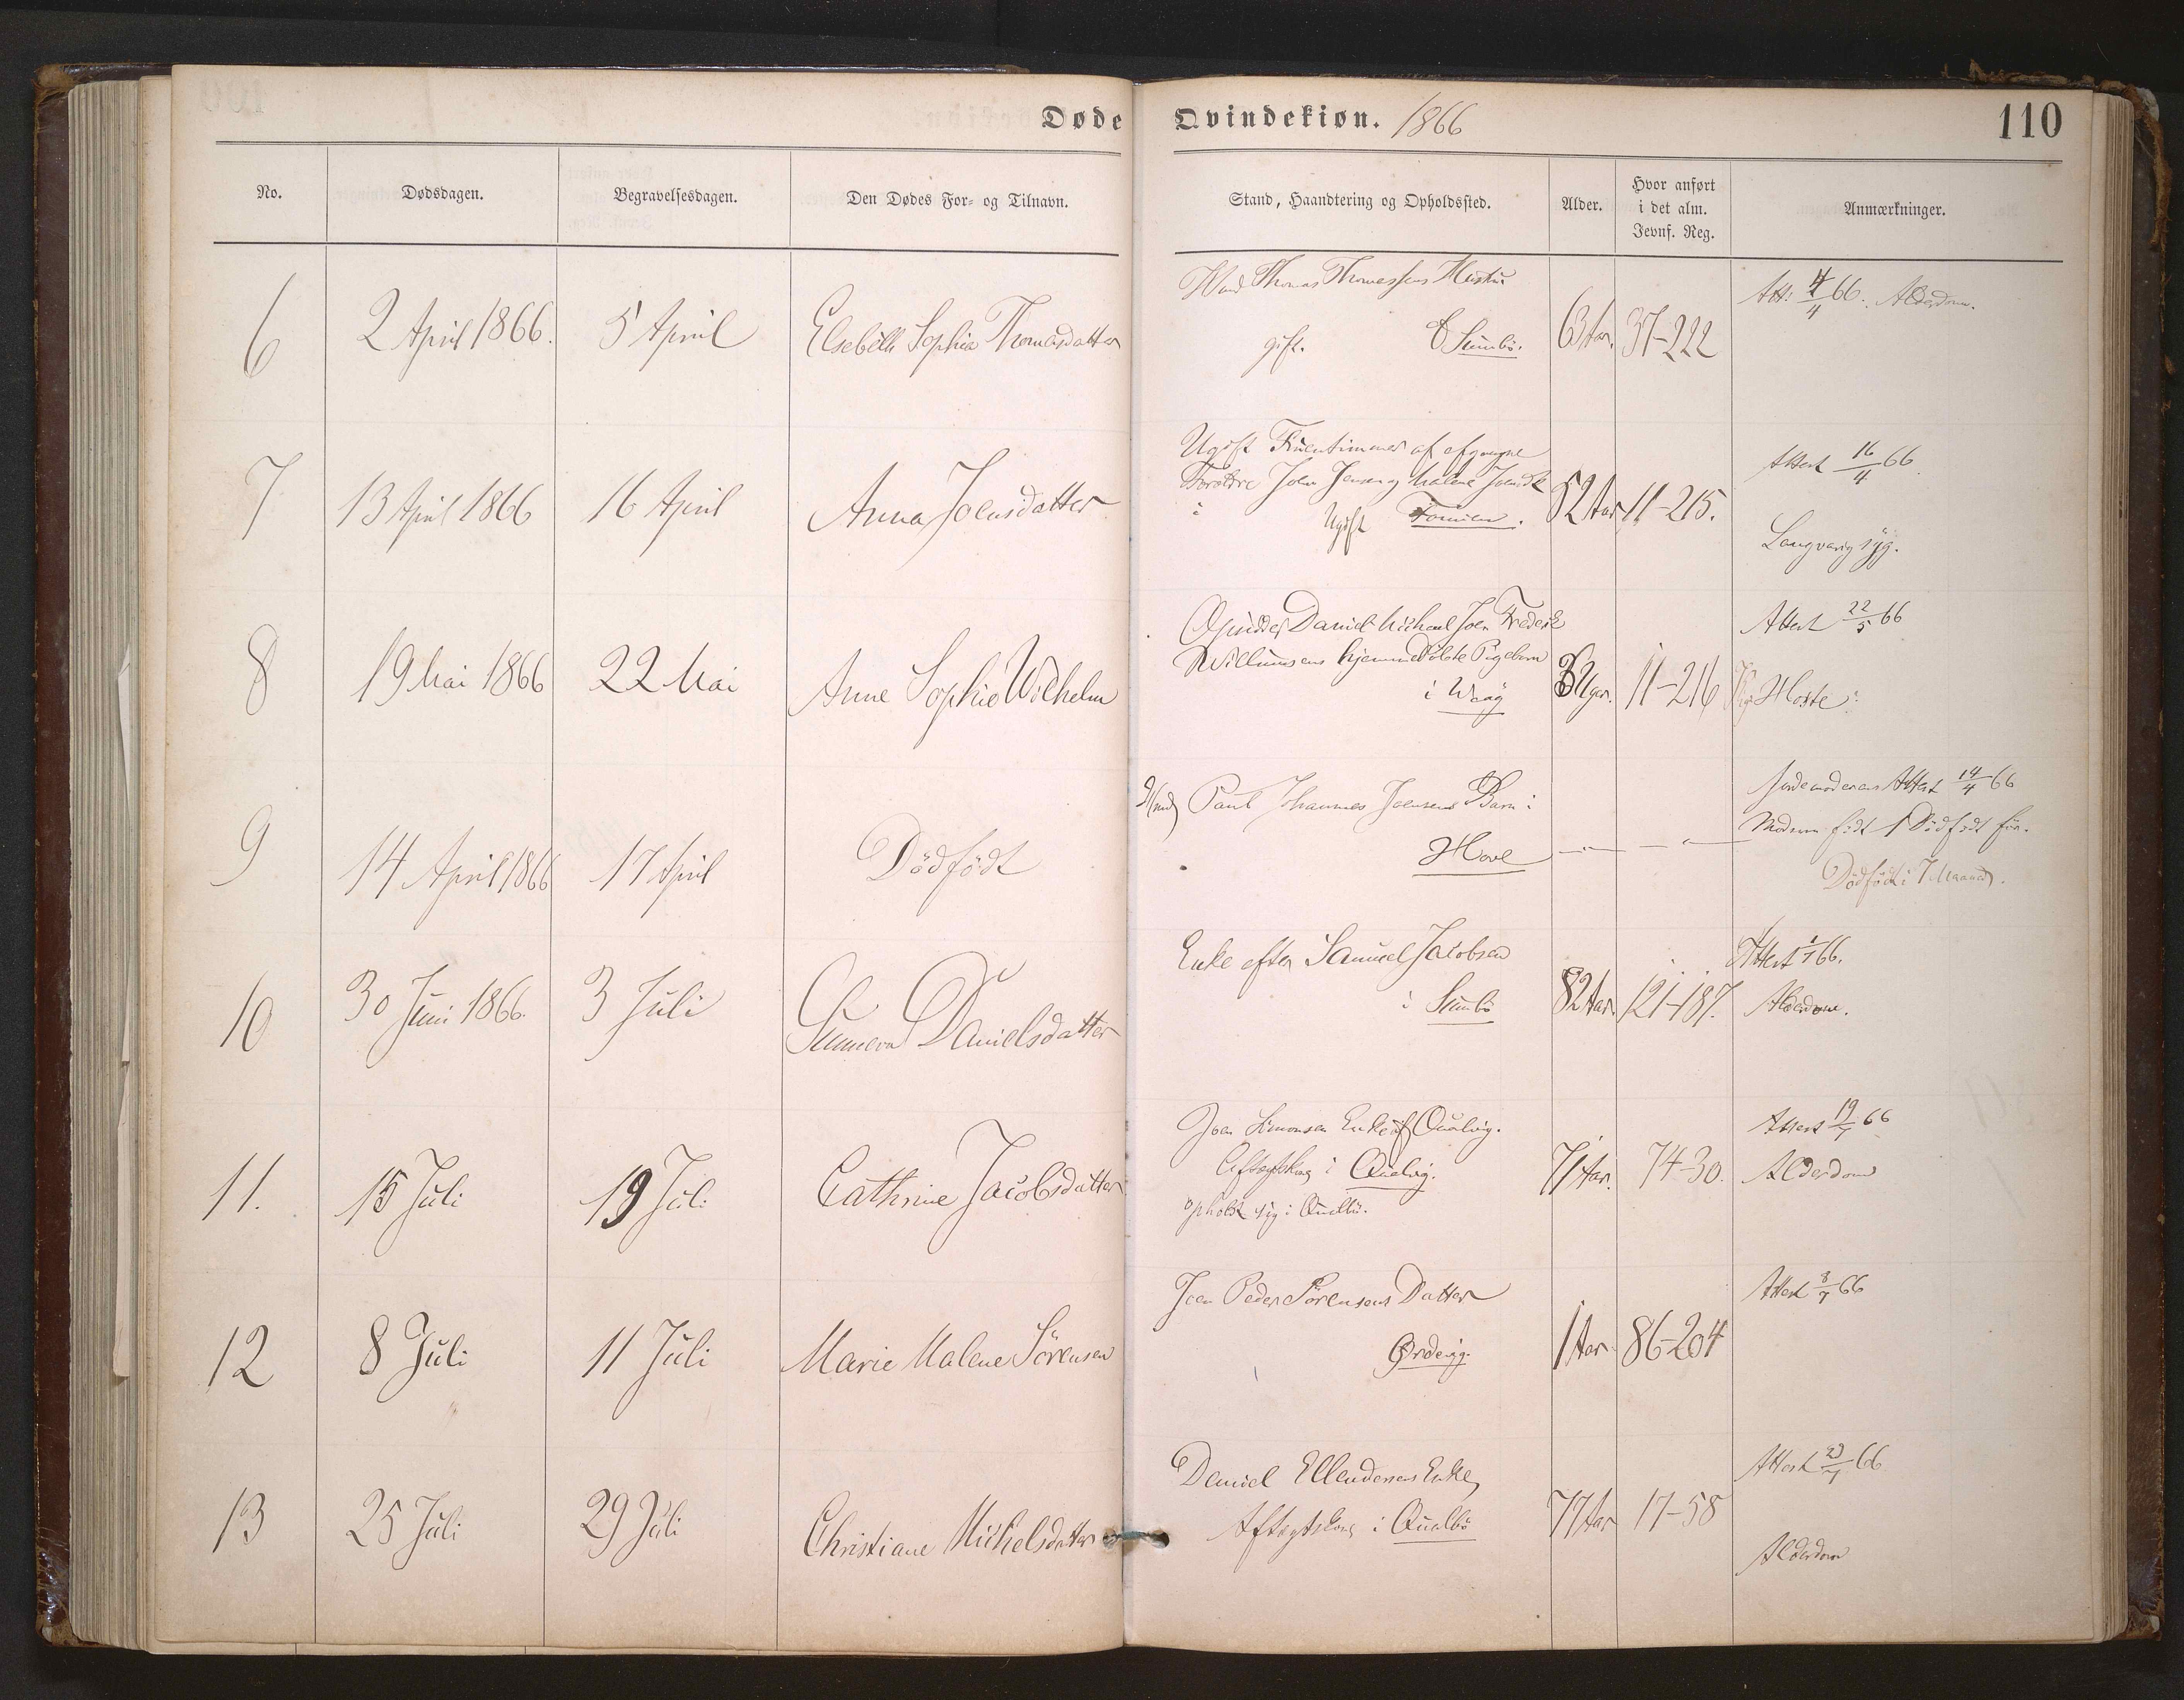 Døde Qvindekiøn. 1866
110
No. Dødsdagen. Begravelsesdagen. Den Dødes For- og Tilnavn. Stand, Haandtering og Opholdssted. Alder. Hvor anført i det alm. Jevnf. Reg. Anmærkninger.
Thomas Thomassens Hustru
6 2 April 1866. 5 April Elsebeth Sophie Thomasdatter gift. Sumbö. 63 Aar. 37-222 Att: 4/4 66. Alderdom.
Ugift Fruentimmer af afgangne
Forældre Joen Jensen og Malene
7 13 April 1866 16 April Anna Joensdatter i Ugift Famien. 52 Aar 11-215. Attest 16/4 66
Langvarig syg.
Daniel Michael Joen Frederik
Willumsens hjemmedöbte Pigebarn
8 19 Mai 1866 22 Mai Anne Sophie Wilhelm i Waag Uger. 11-216 Attest 22/5 66
Hoste
Paul Johannes Joensens Barn i
9 14 April 1866 17 April Dödfödt Hove Jordemoderens Attest 14/4 66
Modren födt 1 Dödfödt för.
Dödfödt i 7 Maaned.
Enke efter Samuel Jacobsen
10 30 Juni 1866. 3 Juli Sunneva Danielsdatter i Sumbö 82 Aar. 121-187. Attest 1/7 66.
Alderdom.
Joen Simonsen Enke af Qualvig.
11. 15 Juli 19 Juli Cathrine Jacobsdatter Aftægtskone i Qualvig. 71 Aar. 74-30. Attest 19/7 66
opholdt sig i Qualbö. Alderdom
Joen Peder Sörensens Datter
12 8 Juli 11 Juli Marie Malene Sörensen Ördevig. 1 Aar 86-204 Attest 8/7 66
Daniel Ellendersens Enke,
13 25 Juli 29 Juli Christiane Michelsdatter Aftægtskone i Qualbö 77 Aar 17-58 Attest 66
Alderdom